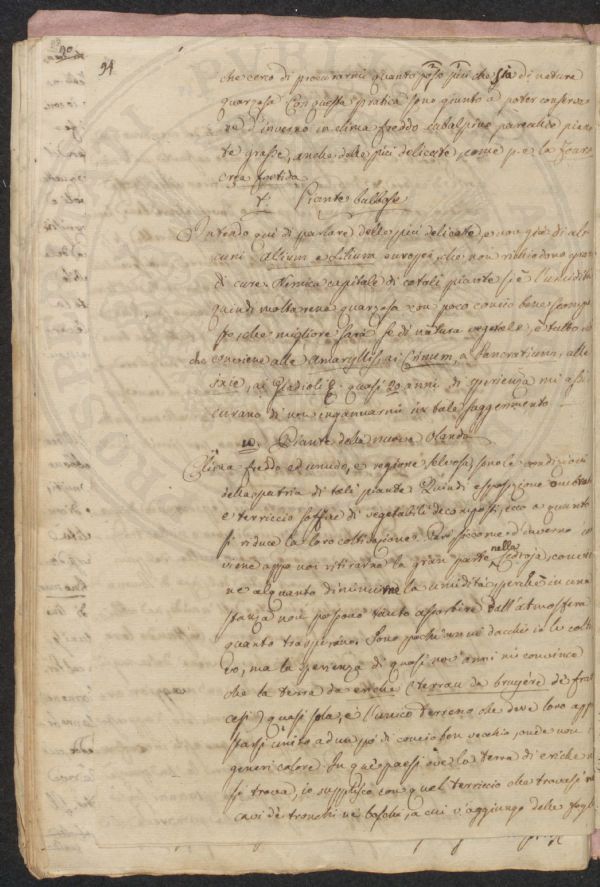 90
94
che cerco di procurarmi quanto posso più che sia di natura
quarzosa. Con questa pratica sono giunto a poter conserva-
re d'inverno in clima freddo cisalpino parecchie pian-
te grasse, anche delle più delicate, come p. e. la
crea foetida.
Piante bulbose
Intendo qui di parlare delle più delicate, e non già di al-
cuni Allium e Lilium europei, che non richiedono gran-
di cure. Nemica capitale di cotali piante si è l'umidità
quindi molta rena quarzosa con poco concio bene scompo-
sto, che migliore sarà se di natura vegetale, è tutto ciò
che conviene alle Amaryllis, ai Crinum, a Pancratium, alle
Ixie, ai Gladioli &. quasi 20 anni di sperienza mi assi-
curano di non ingannarmi in tale suggerimento.
Piante della nuova Olanda
Clima freddo ed umido, e regione selvosa, sono le condizioni
della patria di tali piante. Quindi esposizione ombrata
e terriccio soffice di vegetabili decomposti, ecco a quanto
si riduce la loro coltivazione. Però siccome d'inverno
viene appo noi ritirarne la gran parte nella
ne alquanto diminuirne la umidità, perchè in una
stanza non possono tanto assorbire dall'atmosfera
quanto traspirano. Sono pochi anni dacchè io le colti-
vo, ma la sperienza di quasi nove anni mi convince
che la terra da eriche (terreau de bruyére dei fran-
cesi) quasi sola, è l'unico terreno che deve loro appre-
starsi unito ad un pò di concio ben vecchio, onde non
generi calore. In que' paesi ove la terra di eriche non
si trova, io supplisco con quel terriccio che trovasi ne'
cavi de' tronchi ne' boschi, a cui v'aggiungo delle fogl